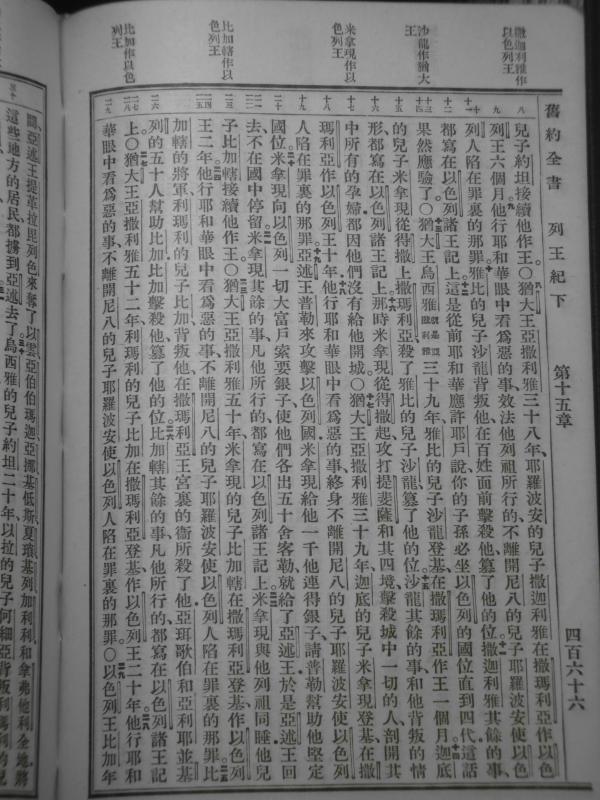 舊約全書　列王紀下　第十五章　四百六十六
撒迦利雅作
以色列王
沙龍作猶大
王
米拿現作以
色列王
比加轄作以
色列王
比加作以色
列王
兒子約坦接續他作王〇猶大王亞撒利雅三十八年耶羅波安的兒子撒迦利雅在撒瑪利亞作以色
列王六個月他行耶和華眼中看爲惡的事效法他列祖所行的不離開尼八的兒子耶羅波安使以色
列人陷在罪裏的那罪雅比的兒子沙龍背叛他在百姓面前擊殺他篡了他的位撒迦利雅其餘的事
都寫在以色列諸王記上這是從前耶和華應許耶戶說你的子孫必坐以色列的國位直到四代這話
果然應驗了〇猶大王烏西雅就是亞撒利雅三十九年雅比的兒子沙龍登基在撒瑪利亞作王一個月迦底
的兒子米拿現從得撒上撒瑪利亞殺了雅比的兒子沙龍篡了他的位沙龍其餘的事和他背叛的情
形都寫在以色列諸王記上那時米拿現從得撒起攻打提斐薩和其四境擊殺城中一切的人剖開其
中所有的孕婦都因他們沒有給他開城〇猶大王亞撒利雅三十九年迦底的兒子米拿現登基在撒
瑪利亞作以色列王十年他行耶和華眼中看爲惡的事終身不離開尼八的兒子耶羅波安使以色列
人陷在罪裏的那罪亞述王普勒來攻擊以色列國米拿現給他一千他連得銀子請普勒幫助他堅定
國位米拿現向以色列一切大富戶索要銀子使他們各出五十舍客勒就給了亞述王於是亞述王回
去不在國中停留米拿現其餘的事凡他所行的都寫在以色列諸王記上米拿現與他列祖同睡他兒
子比加轄接續他作王〇猶大王亞撒利雅五十年米拿現的兒子比加轄在撒瑪利亞登基作以色列
王二年他行耶和華眼中看爲惡的事不離開尼八的兒子耶羅波安使以色列人陷在罪裏的那罪比
加轄的將軍利瑪利的兒子比加背叛他在撒瑪利亞王宮裏的衞所殺了他亞珥歌伯和亞利耶並基
列的五十人幫助比加比加擊殺他篡了他的位比加轄其餘的事凡他所行的都寫在以色列諸王記
上〇猶大王亞撒利雅五十二年利瑪利的兒子比加在撒瑪利亞登基作以色列王二十年他行耶和
華眼中看爲惡的事不離開尼八的兒子耶羅波安使以色列人陷在罪裏的那罪〇以色列王比加年
間亞述王提革拉毘列色來奪了以雲亞伯伯瑪迦亞挪基低斯夏瑣基列加利利和拿弗他利全地將
這些地方的居民都擄到亞述去了烏西雅的兒子約坦二十年以拉的兒子何細亞背叛利瑪利的兒